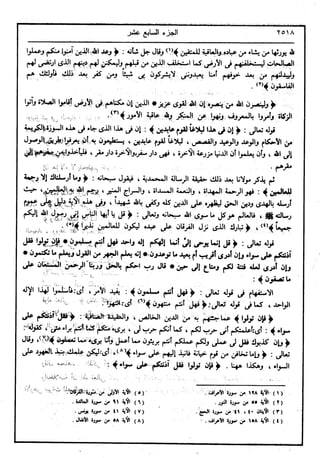 ٢٥١٨ الجزء السابع عشر
لله يورثها من يشاء من عباده والعاقبة للمتقين ﴾(١) وقال جل شأنه : ﴿ وعد الله الذين آمنوا منكم وعملوا
الصالحات ليستخلفنهم في الأرض كما استخلف الذين من قبلهم وليمكنن لهم دينهم الذي ارتضى لهم
وليبدلنهم من بعد خوفهم أمنا يعبدونني لا يشركون بي شيئا ومن كفر بعد ذلك فأولئك هم
الفاسقون ﴾(٢) .
﴿ ولينصرن الله من ينصره إن الله لقوي عزيز * الذين إن مكناهم في الأرض أقاموا الصلاة وآتوا
الزكاة وأمروا بالمعروف ونهوا عن المنكر ولله عاقبة الأمور ﴾(٣) .
قوله تعالى : ﴿ إن في هذا لبلاغا لقوم عابدين ﴾ : إن في هذا الذي جاء في هذه السورة الكريمة
من الأحكام والوعد والوعيد والقصص ، لبلاغا لقوم عابدين ، يستطيعون به أن يعرفوا طريق الوصول
إلى الله ، وأن يعلموا أن الدنيا مزرعة الآخرة ، فهي دار سفر والآخرة دار مقر ، فيأخذوا من ممرهم إلى
مقرهم .
ثم يذكر مولانا بعد ذلك حقيقة الرسالة المحمدية ، فيقول سبحانه : ﴿ وما أرسلناك إلا رحمة
للعالمين ﴾ : فهو الرحمة المهداة ، والنعمة المسداة ، والسراج المنير ، يرحم الله به العالمين ، حيث
أرسله بالهدى ودين الحق ليظهره على الدين كله وكفى بالله شهيدا ، وفي هذه الآية دليل على عموم
رسالته ﷺ ، فالعالم هو كل ما سوى الله سبحانه وتعالى : ﴿ قل يا أيها الناس إني رسول الله إليكم
جميعا ﴾(٤) ، ﴿ تبارك الذي نزل الفرقان على عبده ليكون للعالمين نذيرا ﴾(٥) .
قوله تعالى : ﴿ قل إنما يوحى إلي أنما إلهكم إله واحد فهل أنتم مسلمون * فإن تولوا فقل
آذنتكم على سواء وإن أدري أقريب أم بعيد ما توعدون * إنه يعلم الجهر من القول ويعلم ما تكتمون *
وإن أدري لعله فتنة لكم ومتاع إلى حين * قال رب احكم بالحق وربنا الرحمن المستعان على
ما تصفون ﴾ :
الاستفهام في قوله تعالى : ﴿ فهل أنتم مسلمون ﴾ : يفيد الأمر ، أي : فأسلموا لهذا الإله
الواحد ، كما في قوله تعالى : ﴿ فهل أنتم منتهون ﴾(٦) أي : انتهوا .
﴿ فإن تولوا ﴾ عما جئتهم به من الدين الخالص ، والعقيدة الصافية : ﴿ فقل آذنتكم على
سواء ﴾ : أي أعلمتكم أني حرب لكم ، كما أنكم حرب لي ، بريء منكم كما أنتم برآء مني ، كقوله :
﴿ وإن كذبوك فقل لي عملي ولكم عملكم أنتم بريئون مما أعمل وأنا بريء مما تعملون ﴾(٧) ، وقال
تعالى : ﴿ وإما تخافن من قوم خيانة فانبذ إليهم على سواء ﴾(٨) ، أي : ليكن علمك بنبذ العهود على
السواء ، وهكذا ههنا . ﴿ فإن تولوا فقل آذنتكم على سواء ﴾ :
(١) الآية ١٢٨ من سورة الأعراف .
(٢) الآية ٥٥ من سورة النور .
(٣) الآيتان ٤٠ ، ٤١ من سورة الحج .
(٤) الآية ١٥٨ من سورة الأعراف .
(٥) الآية ١ من سورة الفرقان .
(٦) الآية ٩١ من سورة المائدة .
(٧) الآية ٤١ من سورة يونس .
(٨) الآية ٥٨ من سورة الأنفال .